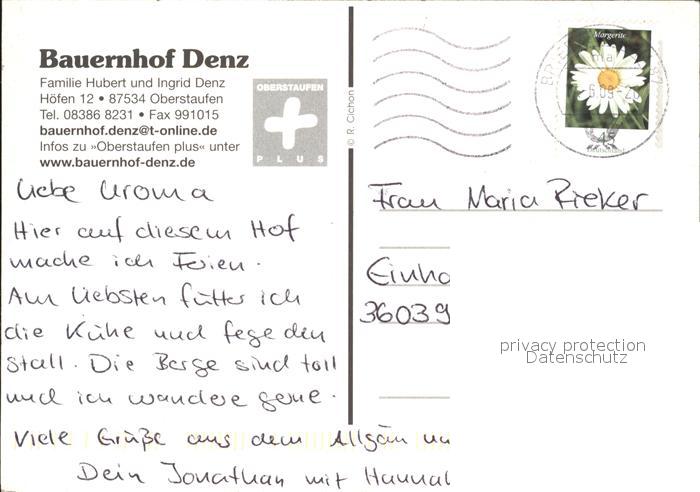 Bauernhof Denz
Familie Hubert und Ingrid Denz
Höfen 12 • 87534 Oberstaufen
Tel. 08386 8231 • Fax 991015
bauernhof.denz@t-online.de
Infos zu »Oberstaufen plus« unter
www.bauernhof-denz.de
OBERSTAUFEN
PLUS
© R. Cichon
Margerite
Deutschland
Liebe Uroma
Hier auf diesem Hof
mache ich Ferien.
Am Liebsten fütter ich
die Kühe und fege den
Stall. Die Berge sind toll
und ich wandere gerne.
Viele Grüße aus dem Allgäu un
Dein Jonathan mit Hannah
Frau Maria Rieker
Einho
36039
privacy protection
Datenschutz